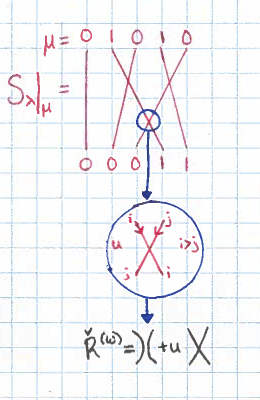 μ = 0 1 0 1 0
S_λ|_μ =
0 0 0 1 1
i j
u i>j
j i
Ř^(w) = )( + u X